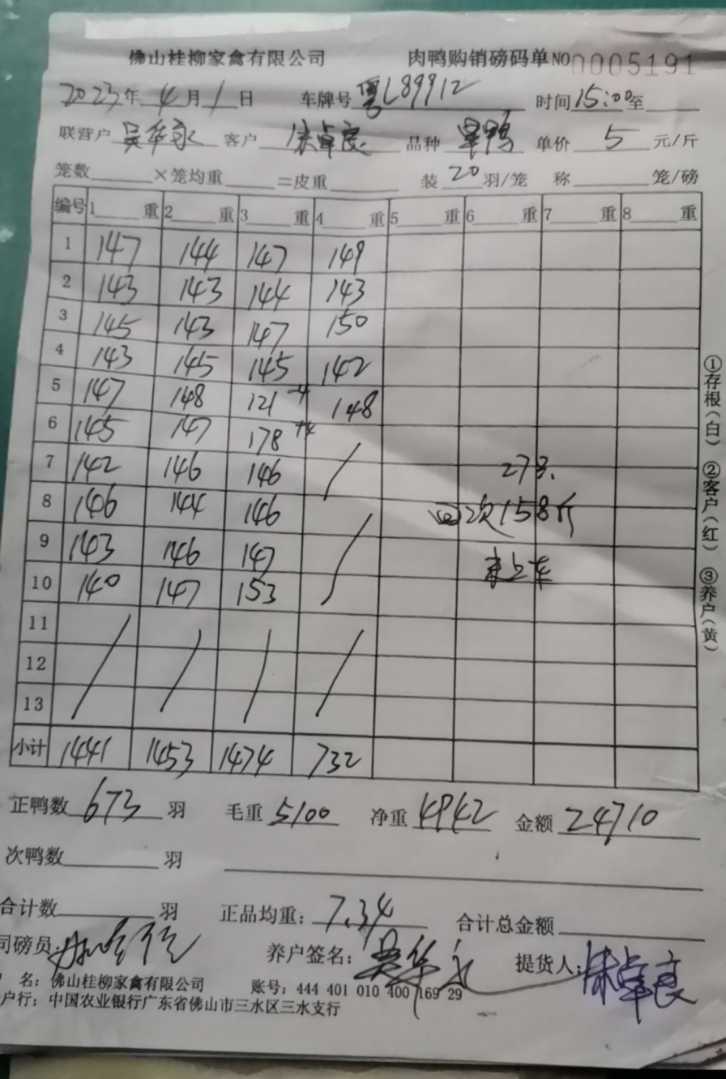 佛山桂柳家禽有限公司 肉鸭购销磅码单NO 0005191
2023年 4月 1日 车牌号 粤L89912 时间15:00至
联营户 吴华永 客户 卓良 品种 旱鸭 单价 5 元/斤
笼数 ×笼均重 =皮重 装 20 羽/笼 称 笼/磅
编号 1 重 2 重 3 重 4 重 5 重 6 重 7 重 8 重
1 147 144 147 149
2 143 143 144 143
3 145 143 147 150
4 143 145 145 142
5 147 148 121 -4 148
6 145 147 178 +4
7 142 146 146 / 27
8 146 144 146 次158斤
9 143 146 147 / 未上车
10 140 147 153
11
12 / / / /
13
小计 1441 1453 1474 732
正鸭数 673 羽 毛重 5100 净重 4942 金额 24710
次鸭数 羽
合计数 羽 正品均重: 7.34 合计总金额
司磅员: 养户签名: 吴华永 提货人: 卓良
名: 佛山桂柳家禽有限公司 账号: 444 401 010 400 169 29
户行: 中国农业银行广东省佛山市三水区三水支行
①存根(白) ②客户(红) ③养户(黄)